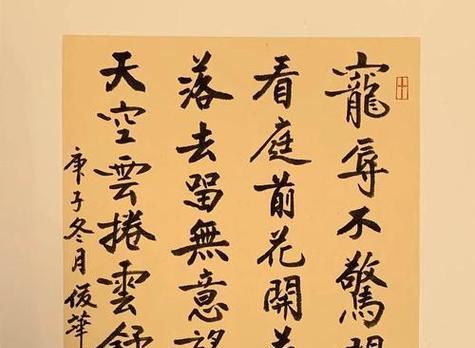 寵辱不驚
看庭前花開
落去留無意望
天空雲捲雲舒
庚子冬月俊華